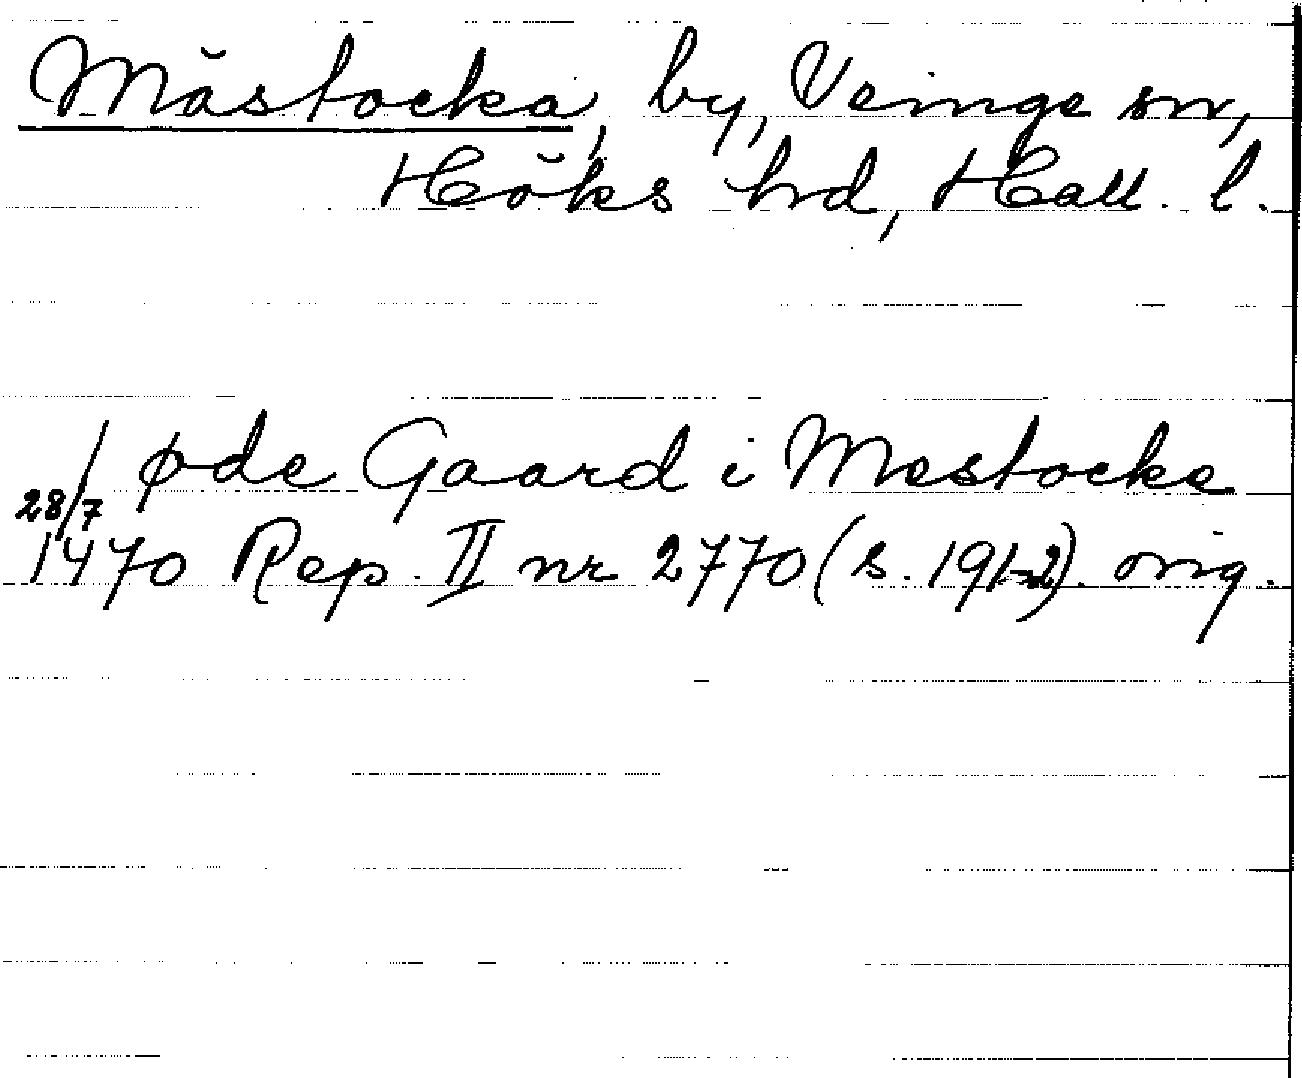 Mästocka, by, Veinge sn,
Höks hd, Hall. l.
øde Gaard i Mestocke
28/7
1470 Rep. II nr 2770 (s. 191-2). orig.